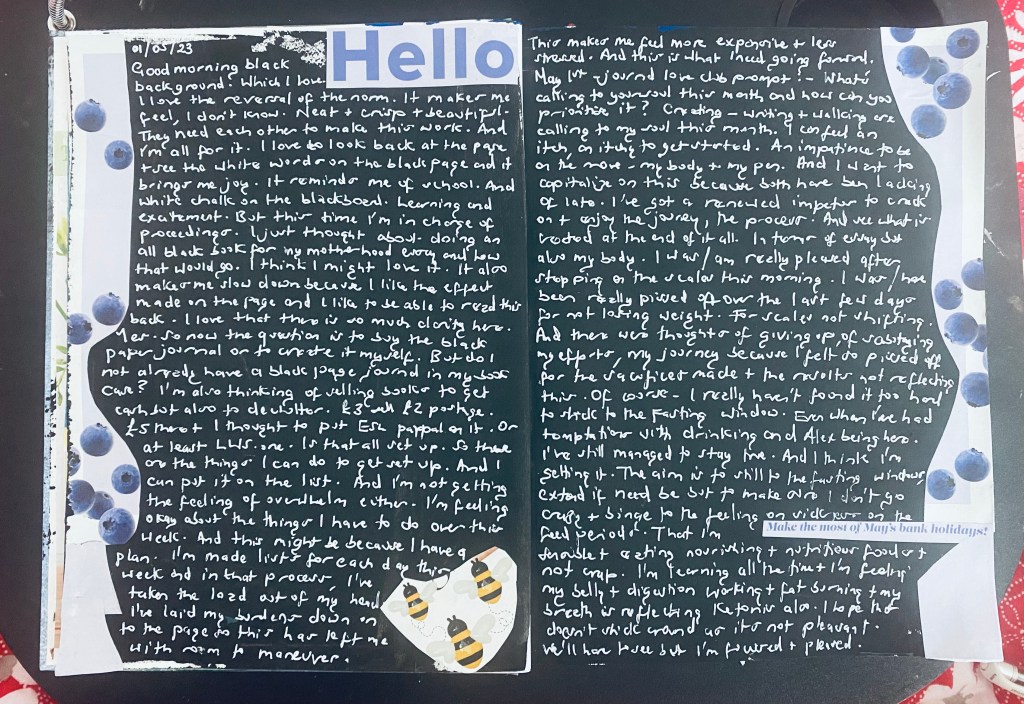 01/05/23
Hello
Good morning black
background. Which I love.
I love the reversal of the norm. It makes me
feel, I don't know. Neat + crisp + beautiful.
They need each other to make this work. And
I'm all for it. I love to look back at the page
+ see the white words on the black page and it
brings me joy. It reminds me of school. And
white chalk on the blackboard. Learning and
excitement. But this time I'm in charge of
proceedings. I just thought about doing an
all black book for my motherhood essay and how
that would go. I think I might love it. It also
makes me slow down because I like the effect
made on the page and I like to be able to read this
back. I love that there is so much clarity here.
Yes. So now the question is to buy the black
paper journal or to create it myself. But do I
not already have a black page journal in my book
case? I'm also thinking of selling books to get
cash but also to declutter. £3 with £2 postage.
£5 there + I thought to put paypal on it. Or
at least one. Is that all set up. So these
are the things I can do to get set up. And I
can put it on the list. And I'm not getting
the feeling of overwhelm either. I'm feeling
okay about the things I have to do over this
week. And this might be because I have a
plan. I'm made lists for each day this
week and in that process, I've
taken the load out of my head
I've laid my burdens down on
to the page so this has left me
with room to maneuver.
This makes me feel more expansive + less
stressed. And this is what I need going forward.
May 1st - journal love club prompt :- What's
calling to your soul this month and how can you
prioritise it? Creating - writing + walking are
calling to my soul this month. I can feel an
itch, an itching to get started. An impatience to be
on the move - my body + my pen. And I want to
capitalize on this because both have been lacking
of late. I've got a renewed impetus to crack
on + enjoy the journey, the process. And see what is
created at the end of it all. In terms of essay but
also my body. I was/am really pleased after
stepping on the scales this morning. I was/have
been really pissed off over the last few days
for not losing weight. For scales not shifting.
And there were thoughts of giving up, of sabotaging
my efforts, my journey because I felt so pissed off
for the sacrifices made + the results not reflecting
this. Of course - I really haven't found it too hard
to stick to the fasting window. Even when I've had
temptations with drinking and Alex being here.
I've still managed to stay true. And I think I'm
getting it. The aim is to still to the fasting window
extend if need be but to make sure I don't go
crazy + binge to the feeling on sickness on the
feed periods. That I'm
Make the most of May's bank holidays!
sensible + eating nourishing + nutritious foods +
not crap. I'm learning all the time + I'm feeling
my belly + digestion working + fat burning + my
breath is reflecting Ketonis also. I hope that
doesn't stick around as it's not pleasant.
We'll have to see but I'm powered + pleased.